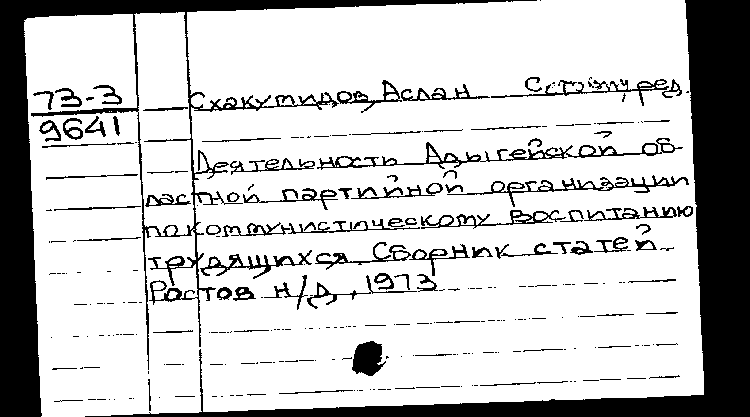 73-3
9641
Схакумидов, Аслан ред.
Деятельность Адыгейской об-
ластной партийной организации
по коммунистическому воспитанию
трудящихся. Сборник статей.
Ростов н/Д., 1973